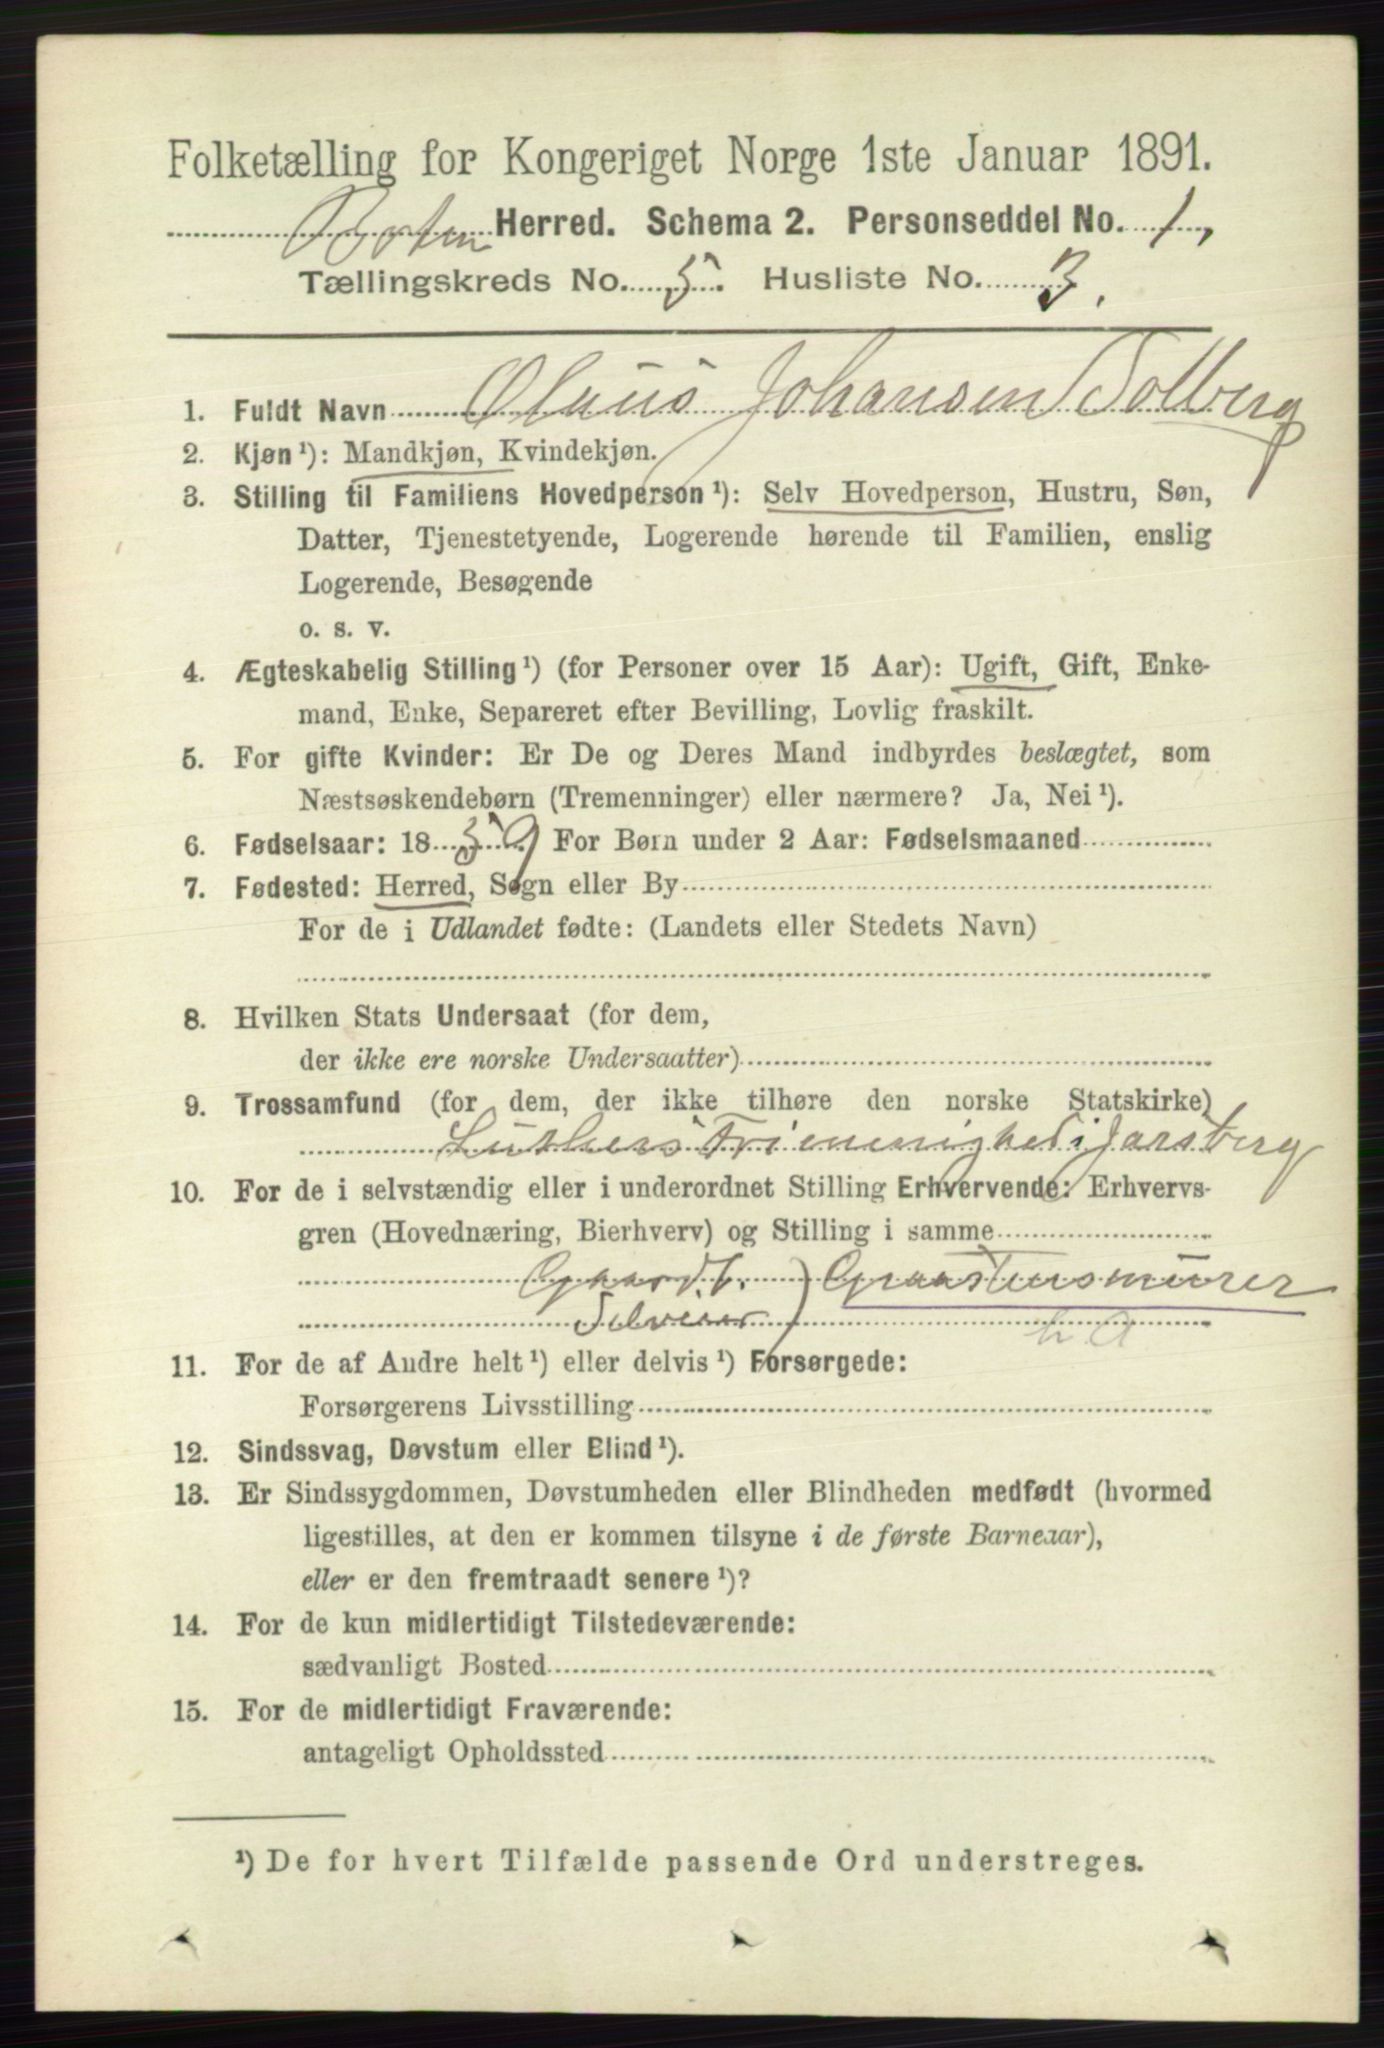 Folketælling for Kongeriget Norge 1ste Januar 1891.
Herred. Schema 2. Personseddel No. 1,
Tællingskreds No. 5. Husliste No. 3.
1. Fuldt Navn Oluus Johansen Solberg
2. Kjøn¹): Mandkjøn, Kvindekjøn.
3. Stilling til Familiens Hovedperson¹): Selv Hovedperson, Hustru, Søn,
Datter, Tjenestetyende, Logerende hørende til Familien, enslig
Logerende, Besøgende
o. s. v.
4. Ægteskabelig Stilling¹) (for Personer over 15 Aar): Ugift, Gift, Enke-
mand, Enke, Separeret efter Bevilling, Lovlig fraskilt.
5. For gifte Kvinder: Er De og Deres Mand indbyrdes beslægtet, som
Næstsøskendebørn (Tremenninger) eller nærmere? Ja, Nei¹).
6. Fødselsaar: 1859 For Børn under 2 Aar: Fødselsmaaned
7. Fødested: Herred, Sogn eller By
For de i Udlandet fødte: (Landets eller Stedets Navn)
8. Hvilken Stats Undersaat (for dem,
der ikke ere norske Undersaatter)
9. Trossamfund (for dem, der ikke tilhøre den norske Statskirke)
Luthers Frimenighed i Jarsberg
10. For de i selvstændig eller i underordnet Stilling Erhvervende: Erhvervs-
gren (Hovednæring, Bierhverv) og Stilling i samme
Gaardb. ) Graastensmurer
Selveier
11. For de af Andre helt¹) eller delvis¹) Forsørgede:
Forsørgerens Livsstilling
12. Sindssvag, Døvstum eller Blind¹).
13. Er Sindssygdommen, Døvstumheden eller Blindheden medfødt (hvormed
ligestilles, at den er kommen tilsyne i de første Barneaar),
eller er den fremtraadt senere¹)?
14. For de kun midlertidigt Tilstedeværende:
sædvanligt Bosted
15. For de midlertidigt Fraværende:
antageligt Opholdssted
¹) De for hvert Tilfælde passende Ord understreges.